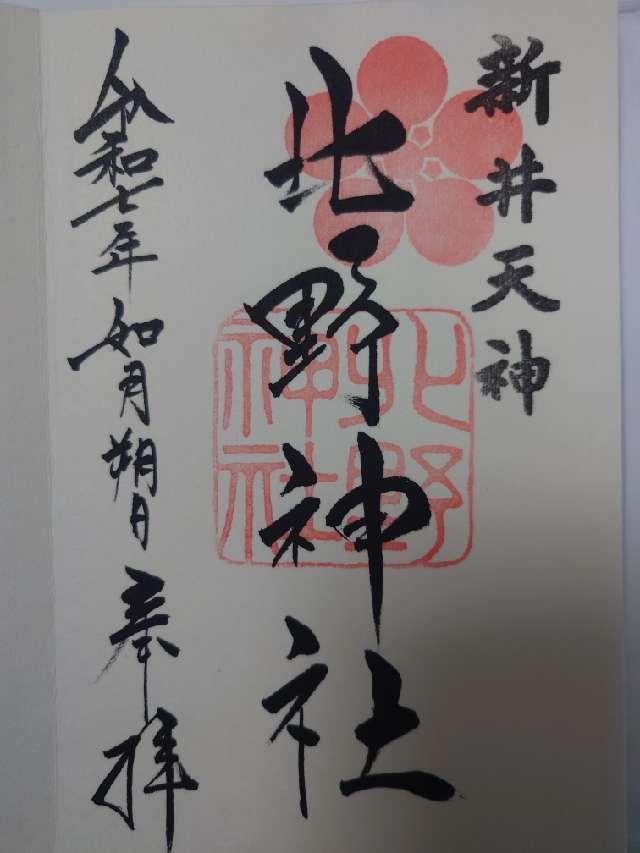 新井天神
北野神社
令和七年如月朔日奉拝
北野
神社